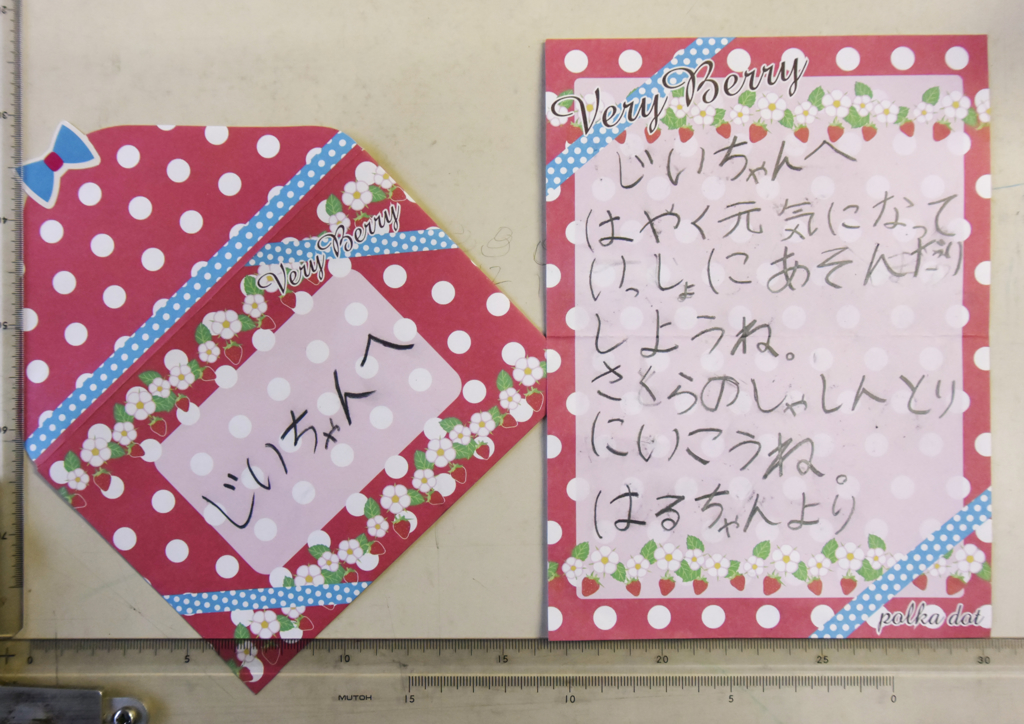 Very Berry
じいちゃんへ
Very Berry
じいちゃんへ
はやく元気になって
けっしょにあそんだり
しようね。
さくらのしゃしんとり
にいこうね。
はるちゃんより
polka dot
0 5 10 15 20 25 30
MUTOH 15 10 5 0